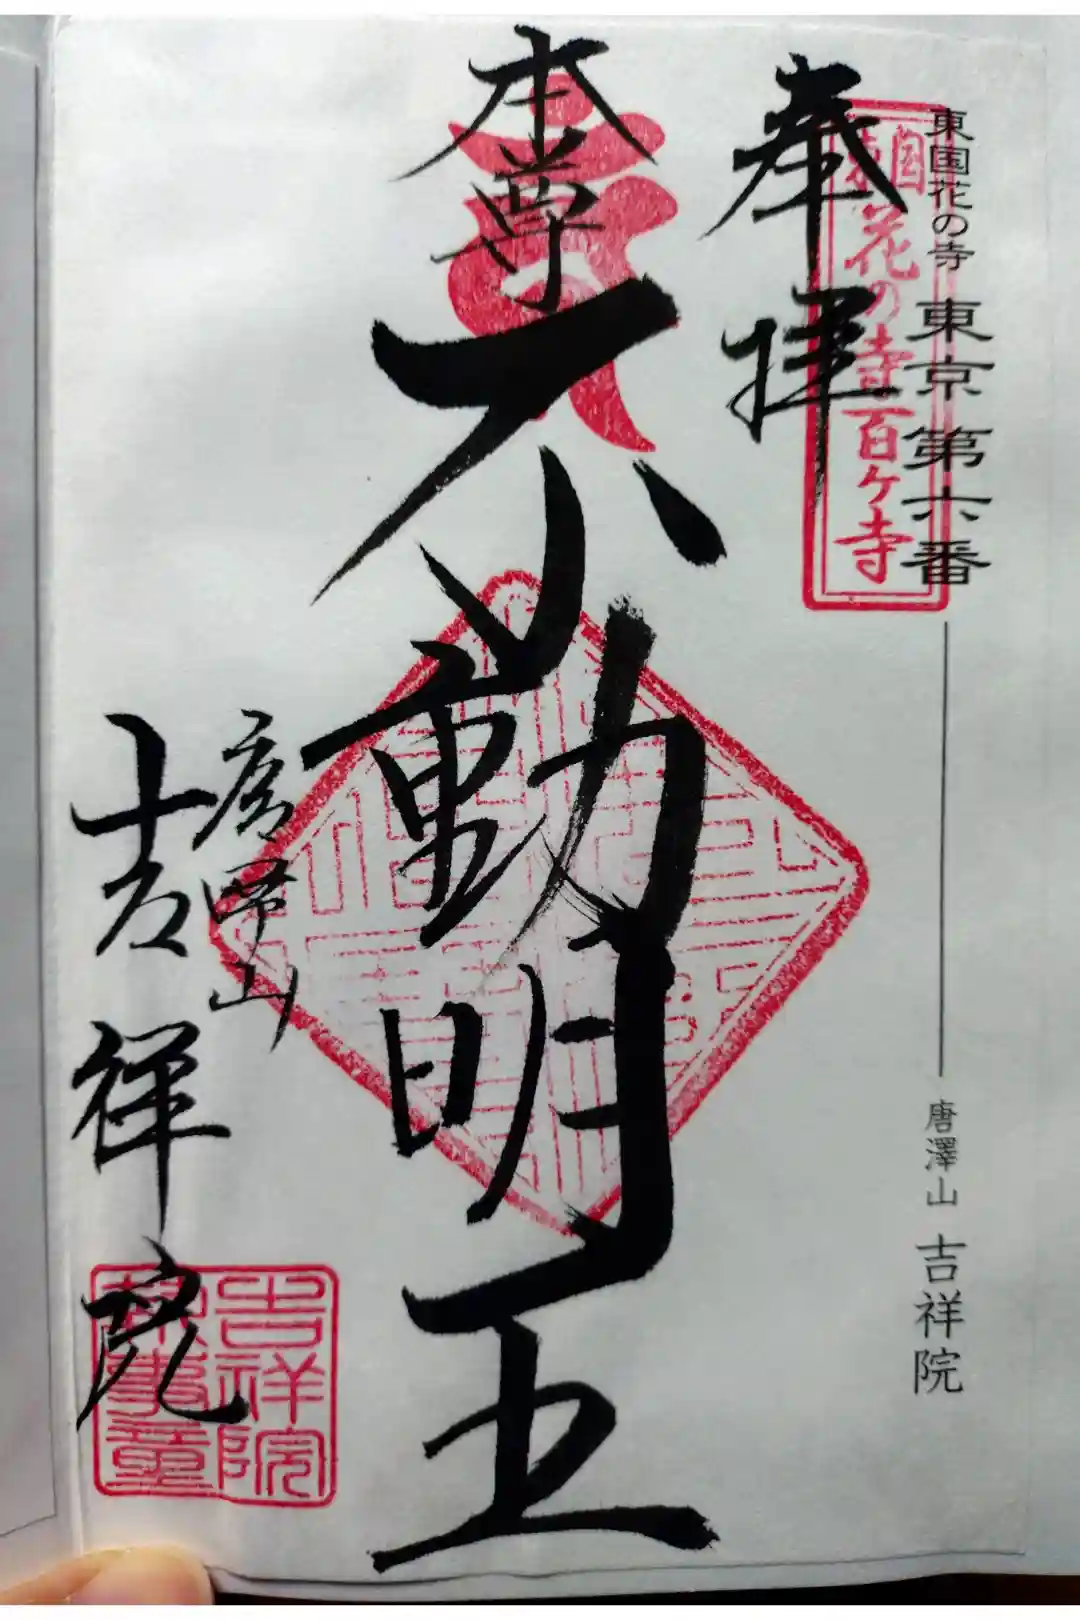 東国花の寺 東京第六番
唐澤山 吉祥院
奉拝
国花の寺百ケ寺
本尊
不動明王
唐澤山
吉祥院
吉祥院